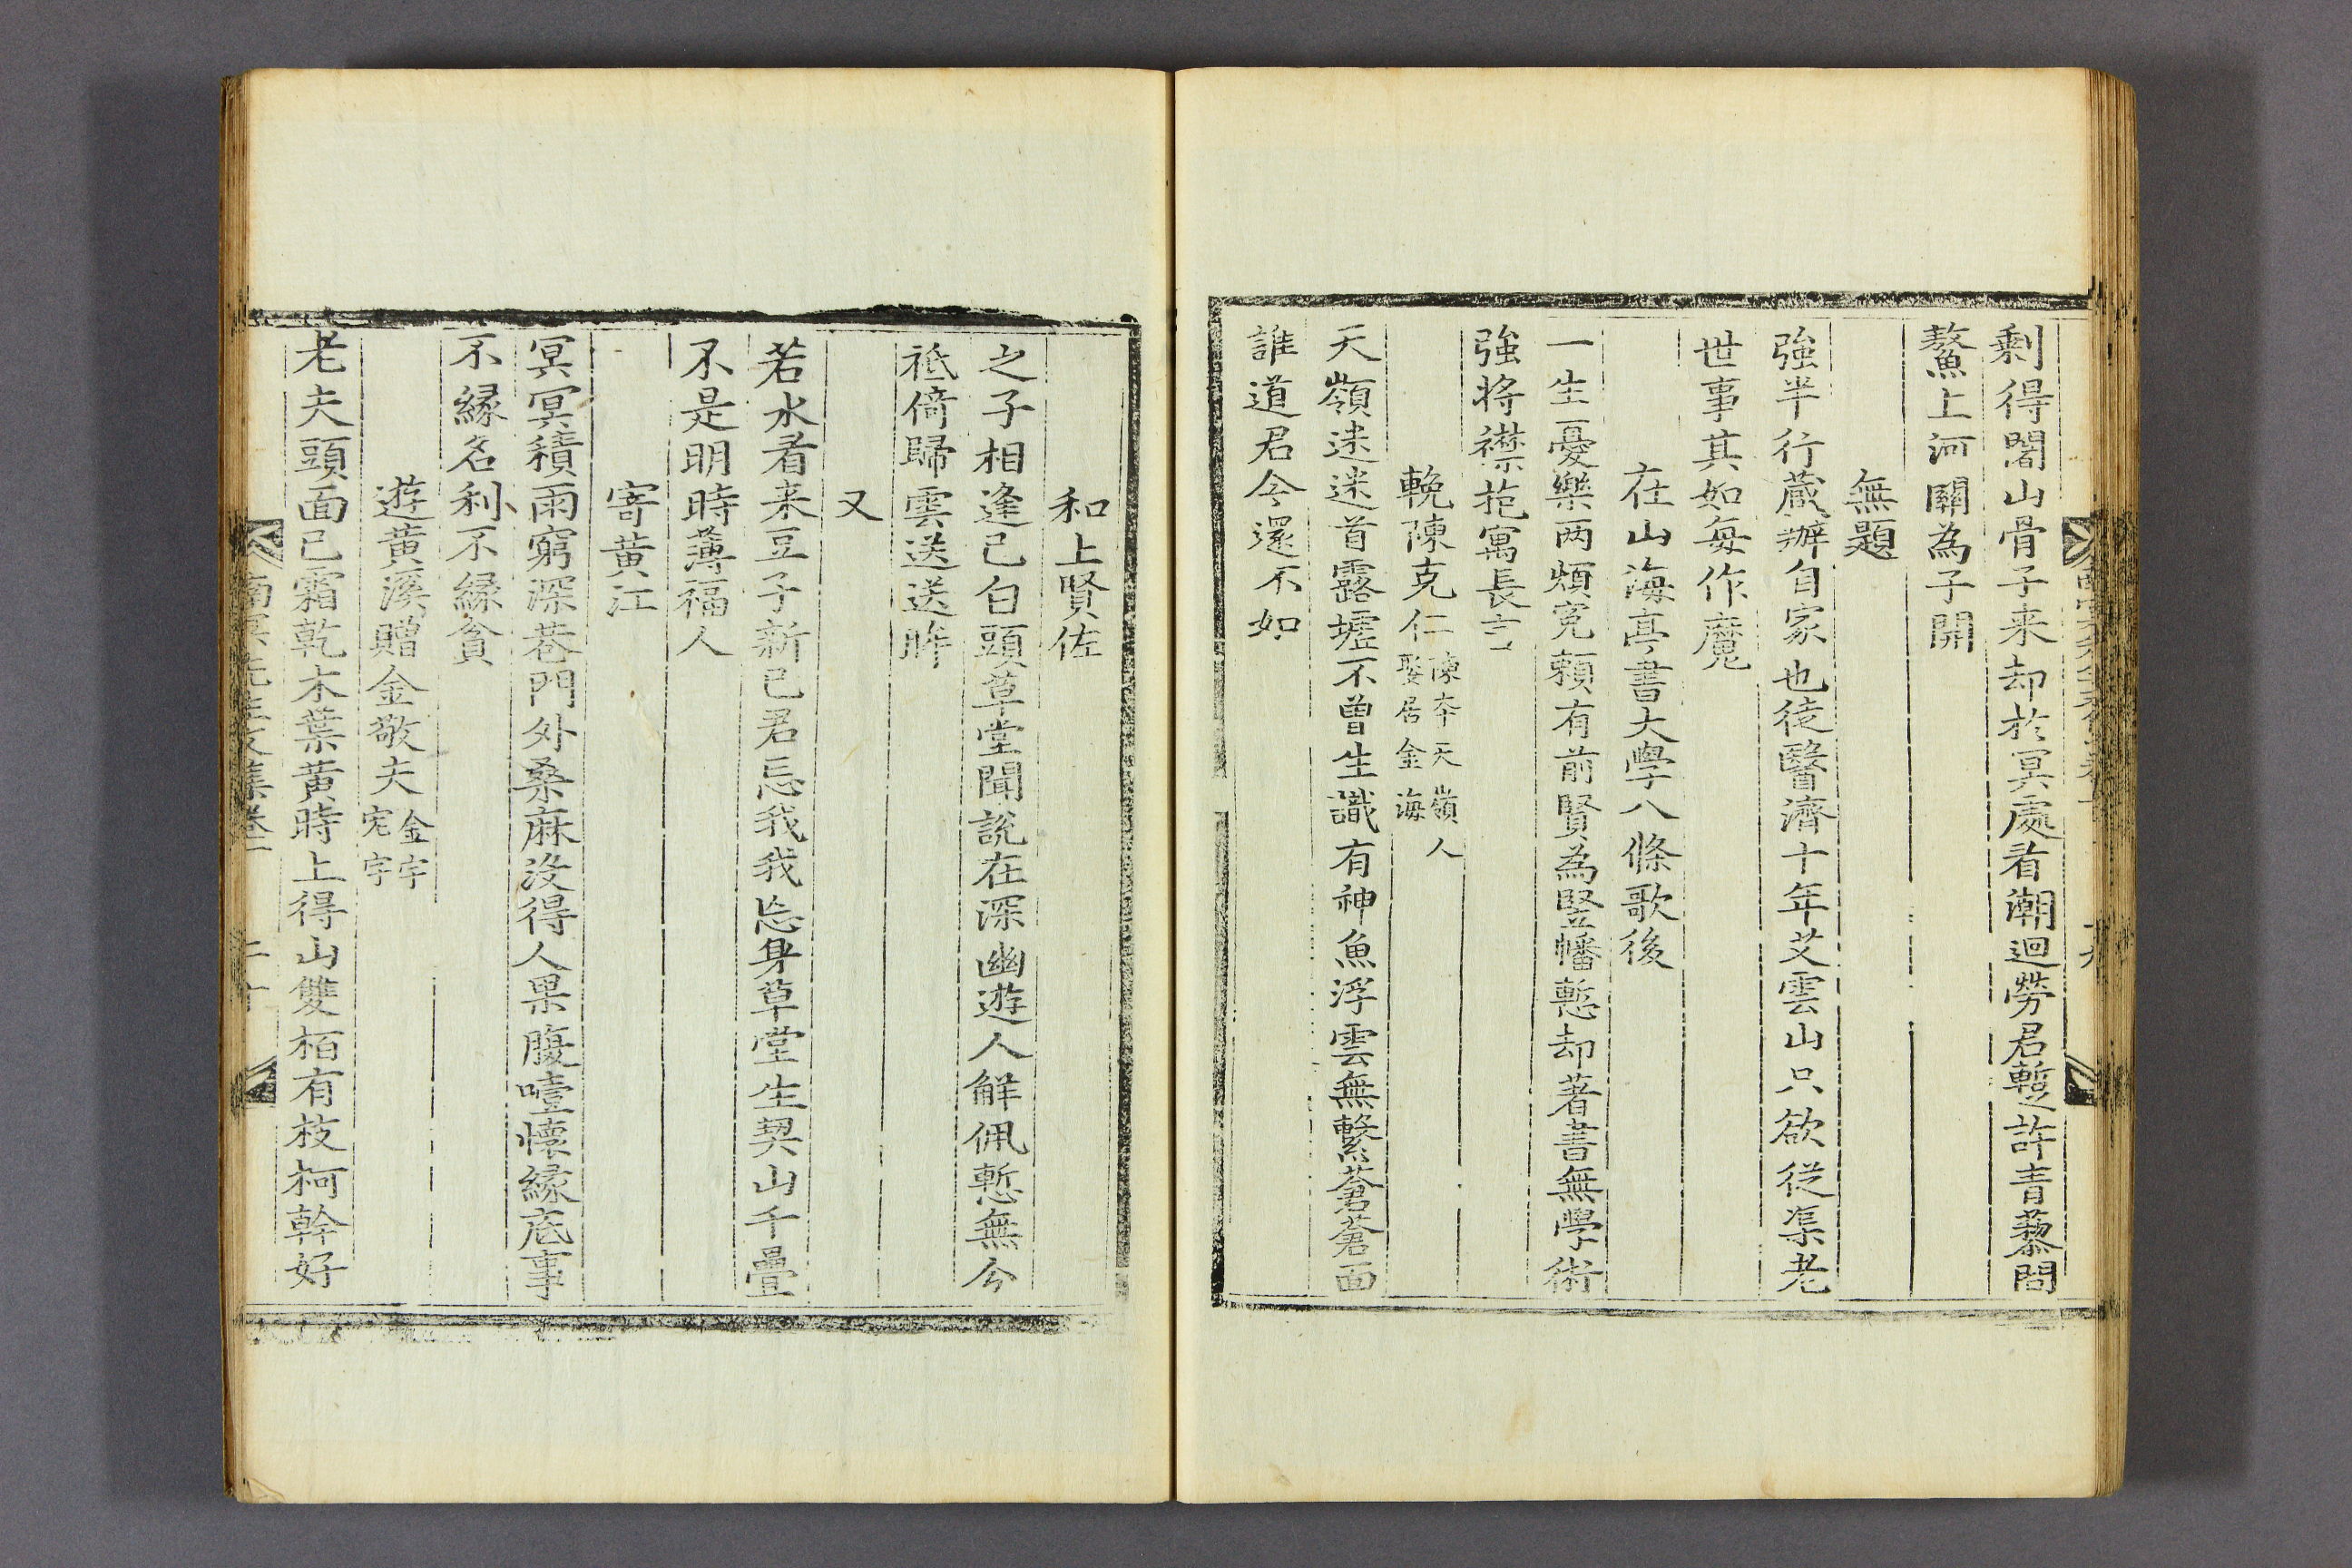 剩得闍山骨子来却於冥處看潮迴勞君蹔許青藜閤
鰲上河關為子開
無題
強半行蔵辦自家也徒醫濟十年艾雲山只欲従渠老
世事其如每作魔
在山海亭書大學八條歌後
一生憂樂两煩寃頼有前賢為竪幡慙却著書無學術
強將襟抱寓長言
輓陳克仁陳本天嶺人娶居金海
天嶺迷迷首露墟不曾生識有神魚浮雲無繫蒼蒼面
誰道君今還不如
和上賢佐
之子相逢已白頭草堂聞說在深幽遊人觧佩慙無今
祗倚歸雲送送眸
又
若水看来豆子新已君忘我我忘身草堂生契山千疊
不是明時薄福人
寄黃江
冥冥積雨窮深巷門外桑麻没得人果腹噎懷緣底事
不緣名利不緣貧
遊黃溪贈金敬夫金宇宏字
老夫頭面已霜乾木葉黃時上得山雙栢有枝柯幹好
南冥先生文集卷一 二十